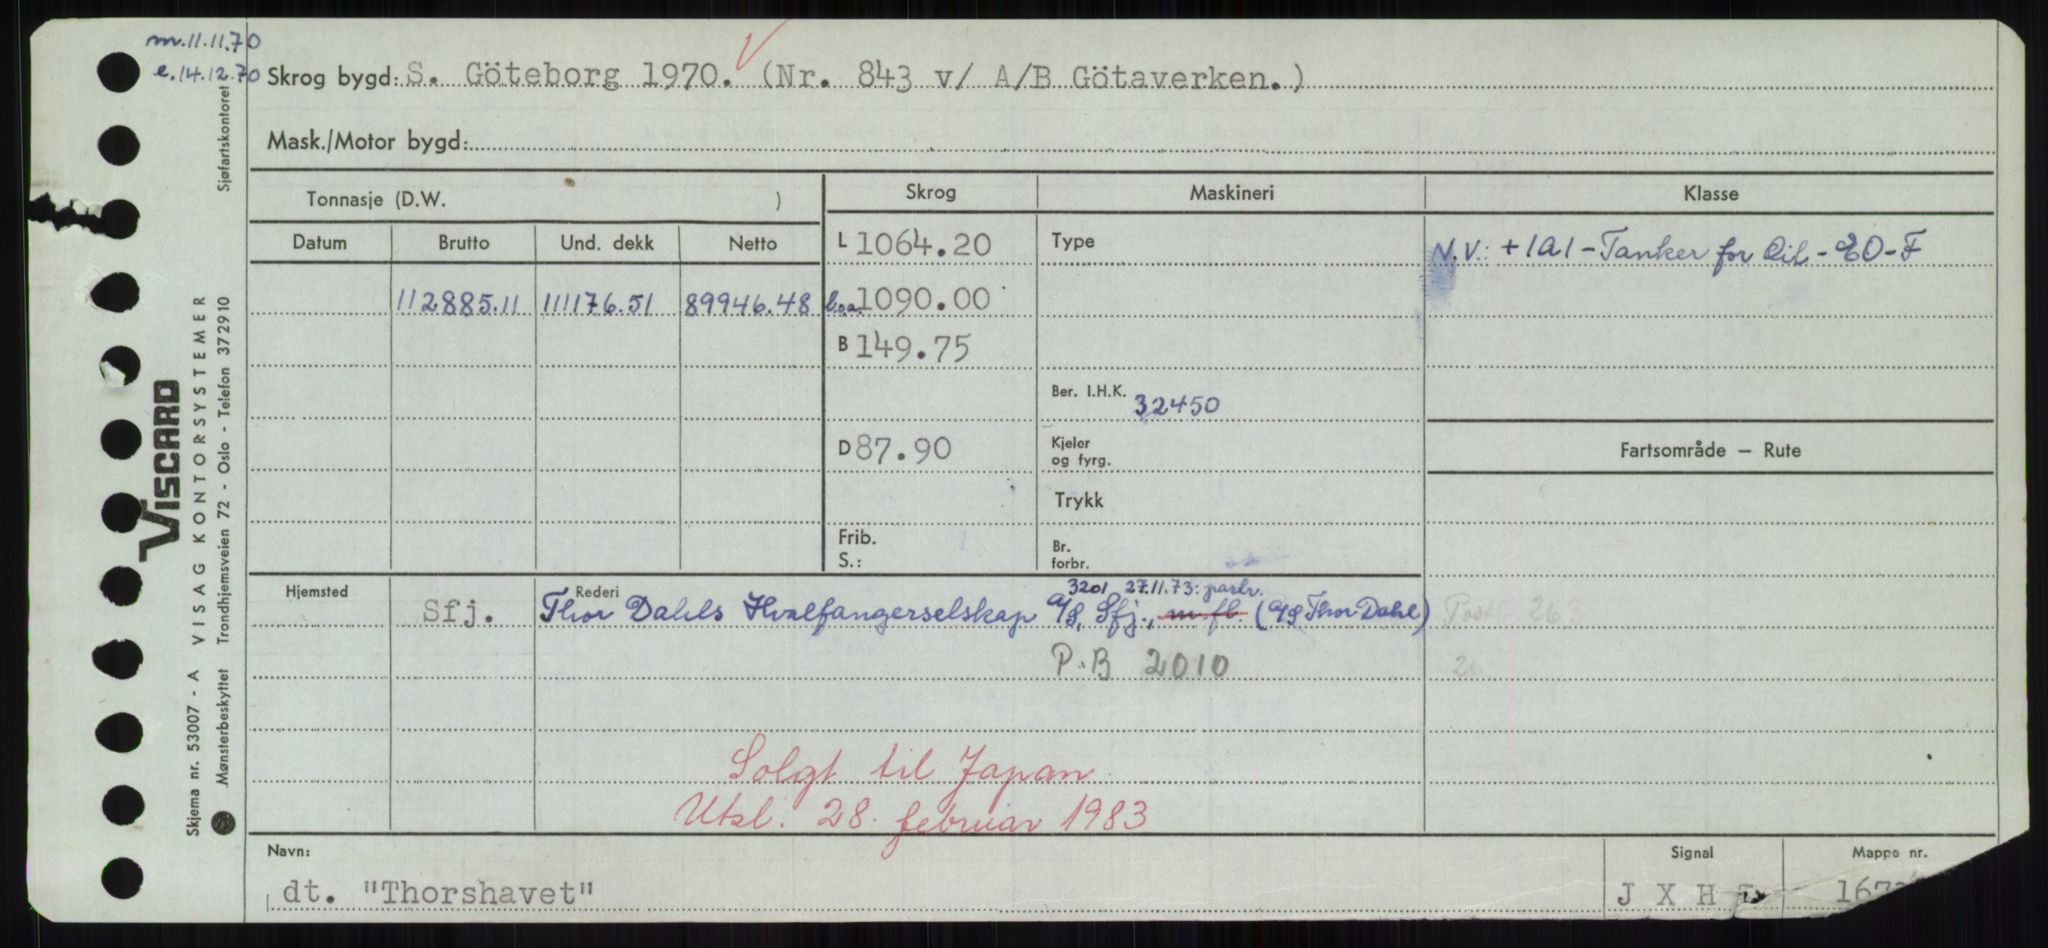 m.11.11.70
e.14.12.70
Skrog bygd: S. Göteborg 1970. (Nr. 843 v/ A/B Götaverken.)
Mask./Motor bygd:
Tonnasje (D.W. )
Skrog
Maskineri
Klasse
Datum
Brutto
Und. dekk
Netto
L 1064.20
Type
N.V: +1A1-Tanker for Oil-EO-F
112885.11
111176.51
89946.48
loa. 1090.00
B 149.75
Ber. I.H.K. 32450
D 87.90
Kjeler
og fyrg.
Fartsområde – Rute
Trykk
Frib.
S.:
Br.
forbr.
Hjemsted
Rederi
3201 27.11.73: partr.
Sfj.
Thor Dahls Hvalfangerselskap A/S, Sfj., m.fl. (A/S Thor Dahl)
Post 26
P.B 2010
26
Solgt til Japan
Utsl. 28. februar 1983
Navn:
dt. "Thorshavet"
Signal
J X H
Mappe nr.
167
VISCARD
VISAG KONTORSYSTEMER
Skjema nr. 53007 - A
Mønsterbeskyttet
Trondhjemsveien 72 - Oslo - Telefon 372910
Sjøfartskontoret